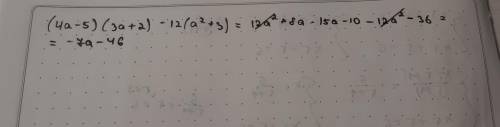 (4a-5)(3a+2) - 12(a²+3) = 12a² + 8a - 15a - 10 - 12a² - 36 =
= -7a - 46